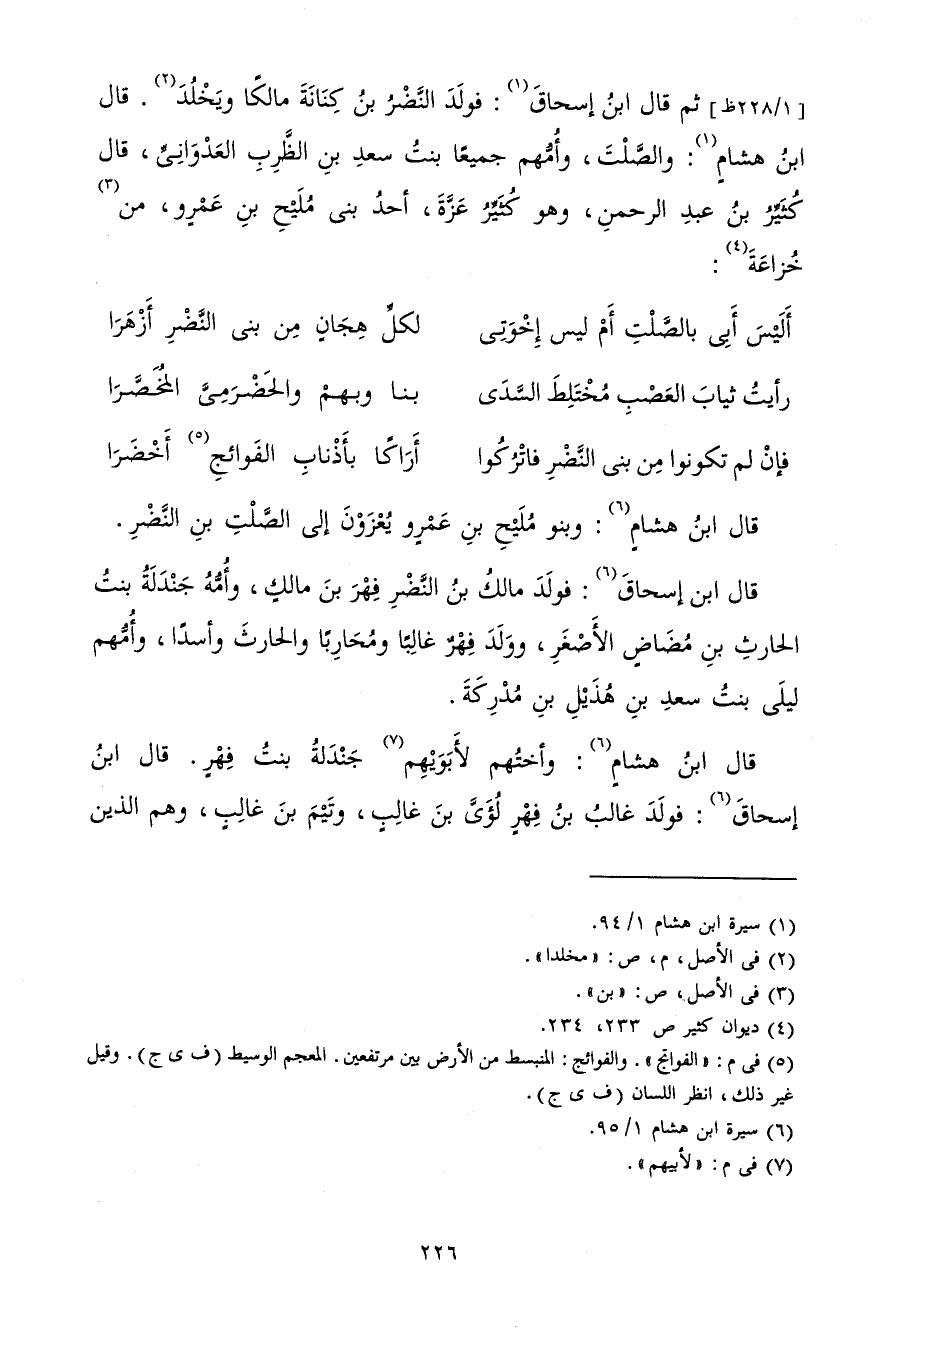 [٢٢٨/١ظ] ثم قال ابنُ إسحاقَ(١) : فولَدَ النَّضْرُ بنُ كِنَانَةَ مالكًا ويَخْلُدَ(٢) . قال
ابنُ هشامٍ(١): والصَّلْتَ ، وأُمُّهم جميعًا بنتُ سعدِ بنِ الظَّرِبِ العَدْوَانِىِّ ، قال
كُثَيِّرُ بنُ عبدِ الرحمنِ ، وهو كُثَيِّرُ عَزَّةَ ، أحدُ بنى مُلَيْحِ بنِ عَمْرٍو ، من(٣)
خُزاعَةَ(٤) :
أَلَيْسَ أَبِى بالصَّلْتِ أَمْ ليس إِخْوَتِى لكلِّ هِجَانٍ مِن بنى النَّضْرِ أَزْهَرَا
رأيتُ ثيابَ العَصْبِ مُخْتَلِطَ السَّدَى بنا وبهمْ والحَضْرَمِىَّ المُخَصَّرَا
فإنْ لم تكونوا مِن بنى النَّضْرِ فاتْرُكُوا أَرَاكًا بأَذْنابِ الفَوائجِ(٥) أَخْضَرَا
قال ابنُ هشامٍ(٦) : وبنو مُلَيْحِ بنِ عَمْرٍو يُعْزَوْنَ إلى الصَّلْتِ بنِ النَّضْرِ .
قال ابن إسحاقَ(٦) : فولَدَ مالكُ بنُ النَّضْرِ فِهْرَ بنَ مالكٍ ، وأُمُّهُ جَنْدَلَةُ بنتُ
الحارثِ بنِ مُضَاضٍ الأَصْغَرِ ، ووَلَدَ فِهْرٌ غالِبًا ومُحَارِبًا والحارثَ وأسدًا ، وأُمُّهم
ليلَى بنتُ سعدِ بنِ هُذَيْلِ بنِ مُدْرِكَةَ .
قال ابنُ هشامٍ(٦) : وأختُهم لأَبَوَيْهِم(٧) جَنْدَلةُ بنتُ فِهْرٍ . قال ابنُ
إسحاقَ(٦) : فولَدَ غالبُ بنُ فِهْرٍ لُؤَىَّ بنَ غالِبٍ ، وتَيْمَ بنَ غالِبٍ ، وهم الذين
(١) سيرة ابن هشام ٩٤/١.
(٢) فى الأصل ، م ، ص : «مخلدا» .
(٣) فى الأصل ، ص : «بن» .
(٤) ديوان كثير ص ٢٣٣، ٢٣٤.
(٥) فى م : «الفواتح» . والفوائج : المنبسط من الأرض بين مرتفعين . المعجم الوسيط (ف ى ج) . وقيل
غير ذلك ، انظر اللسان (ف ى ج) .
(٦) سيرة ابن هشام ٩٥/١.
(٧) فى م : «لأبيهم» .
٢٢٦